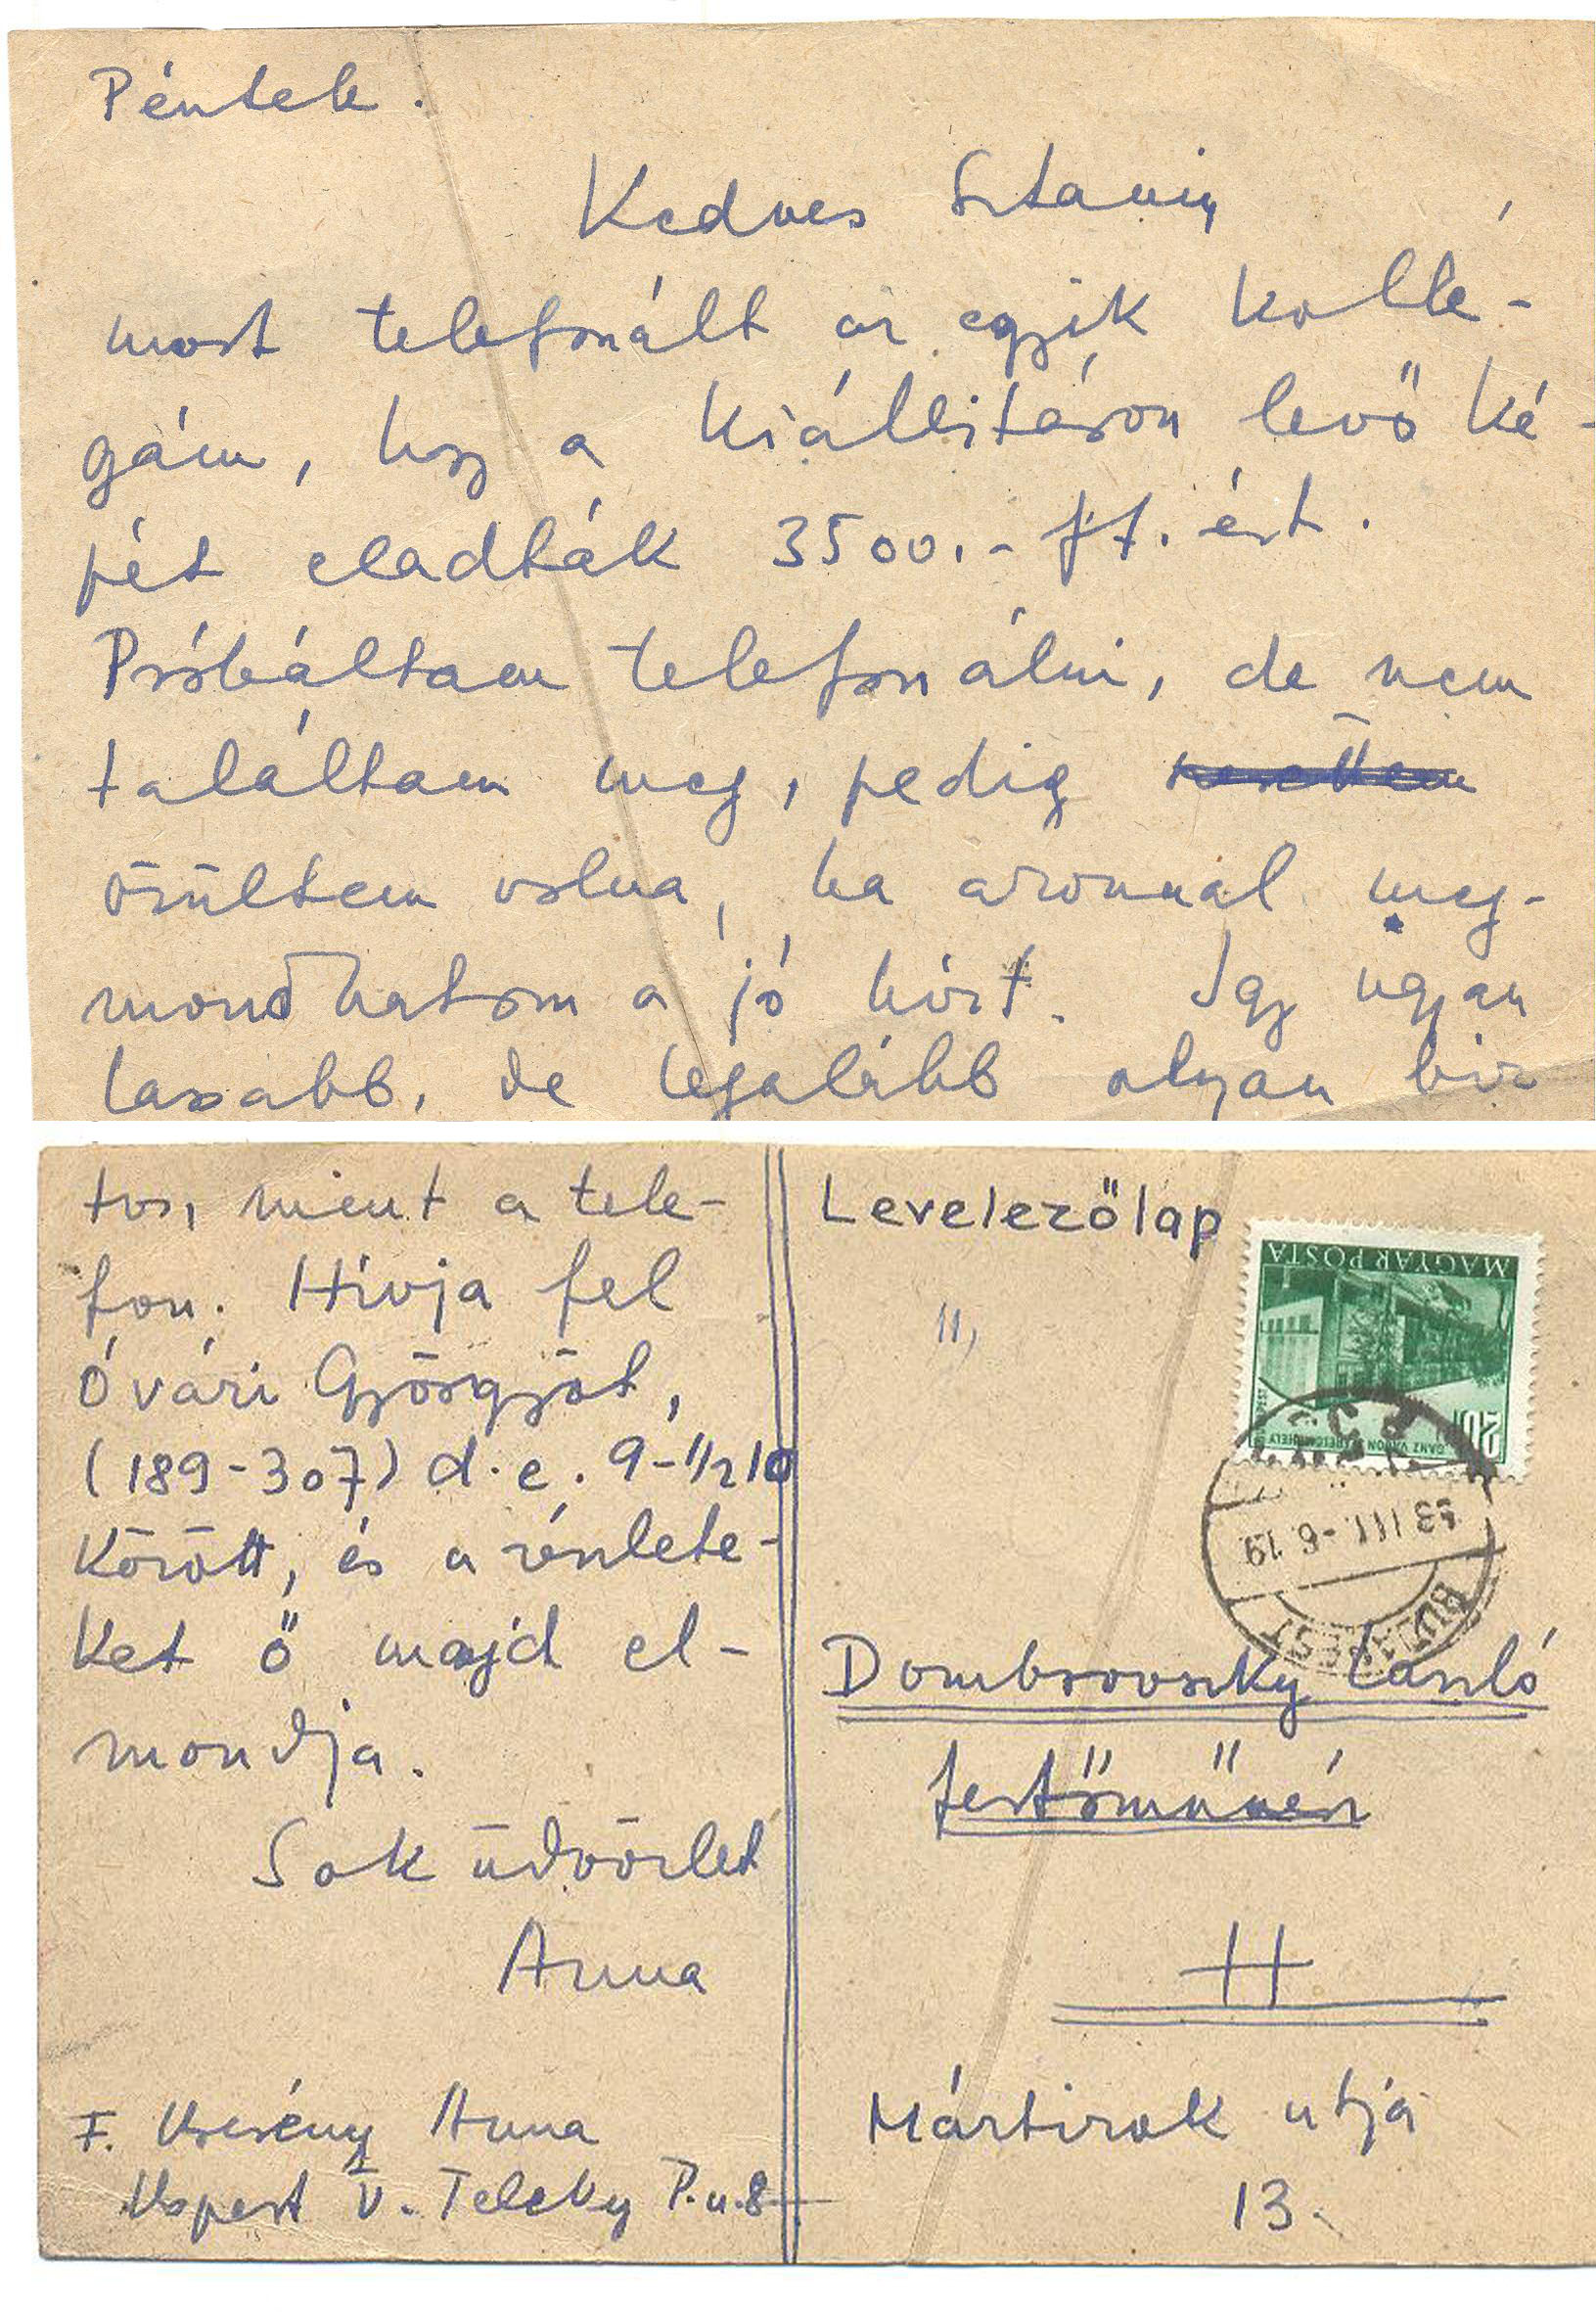 Péntek.
Kedves Sztaniy
most telefonált az egyik kollé-
gám, hogy a kiállitáson levő ké-
pét eladták 3500.- ft. ért.
Próbáltam telefonálni, de nem
találtam meg, pedig
örültem volna, ha azonnal meg-
mondhatom a jó hírt. Igy ugyan
lassabb, de legalább olyan biz
tos, mint a tele-
fon. Hívja fel
Óvári Györgyöt,
(189-307) d.e. 9-1/2 10
között, és a részlete-
ket ő majd el-
mondja.
Sok üdvözlet
Anna
F. Anna
V. Teleky P.u.8
Levelezőlap
MAGYAR POSTA
20f
BUDAPEST
53 III.-6.19
Dombrovszky László
festőművész
II
Mártirok utja
13.